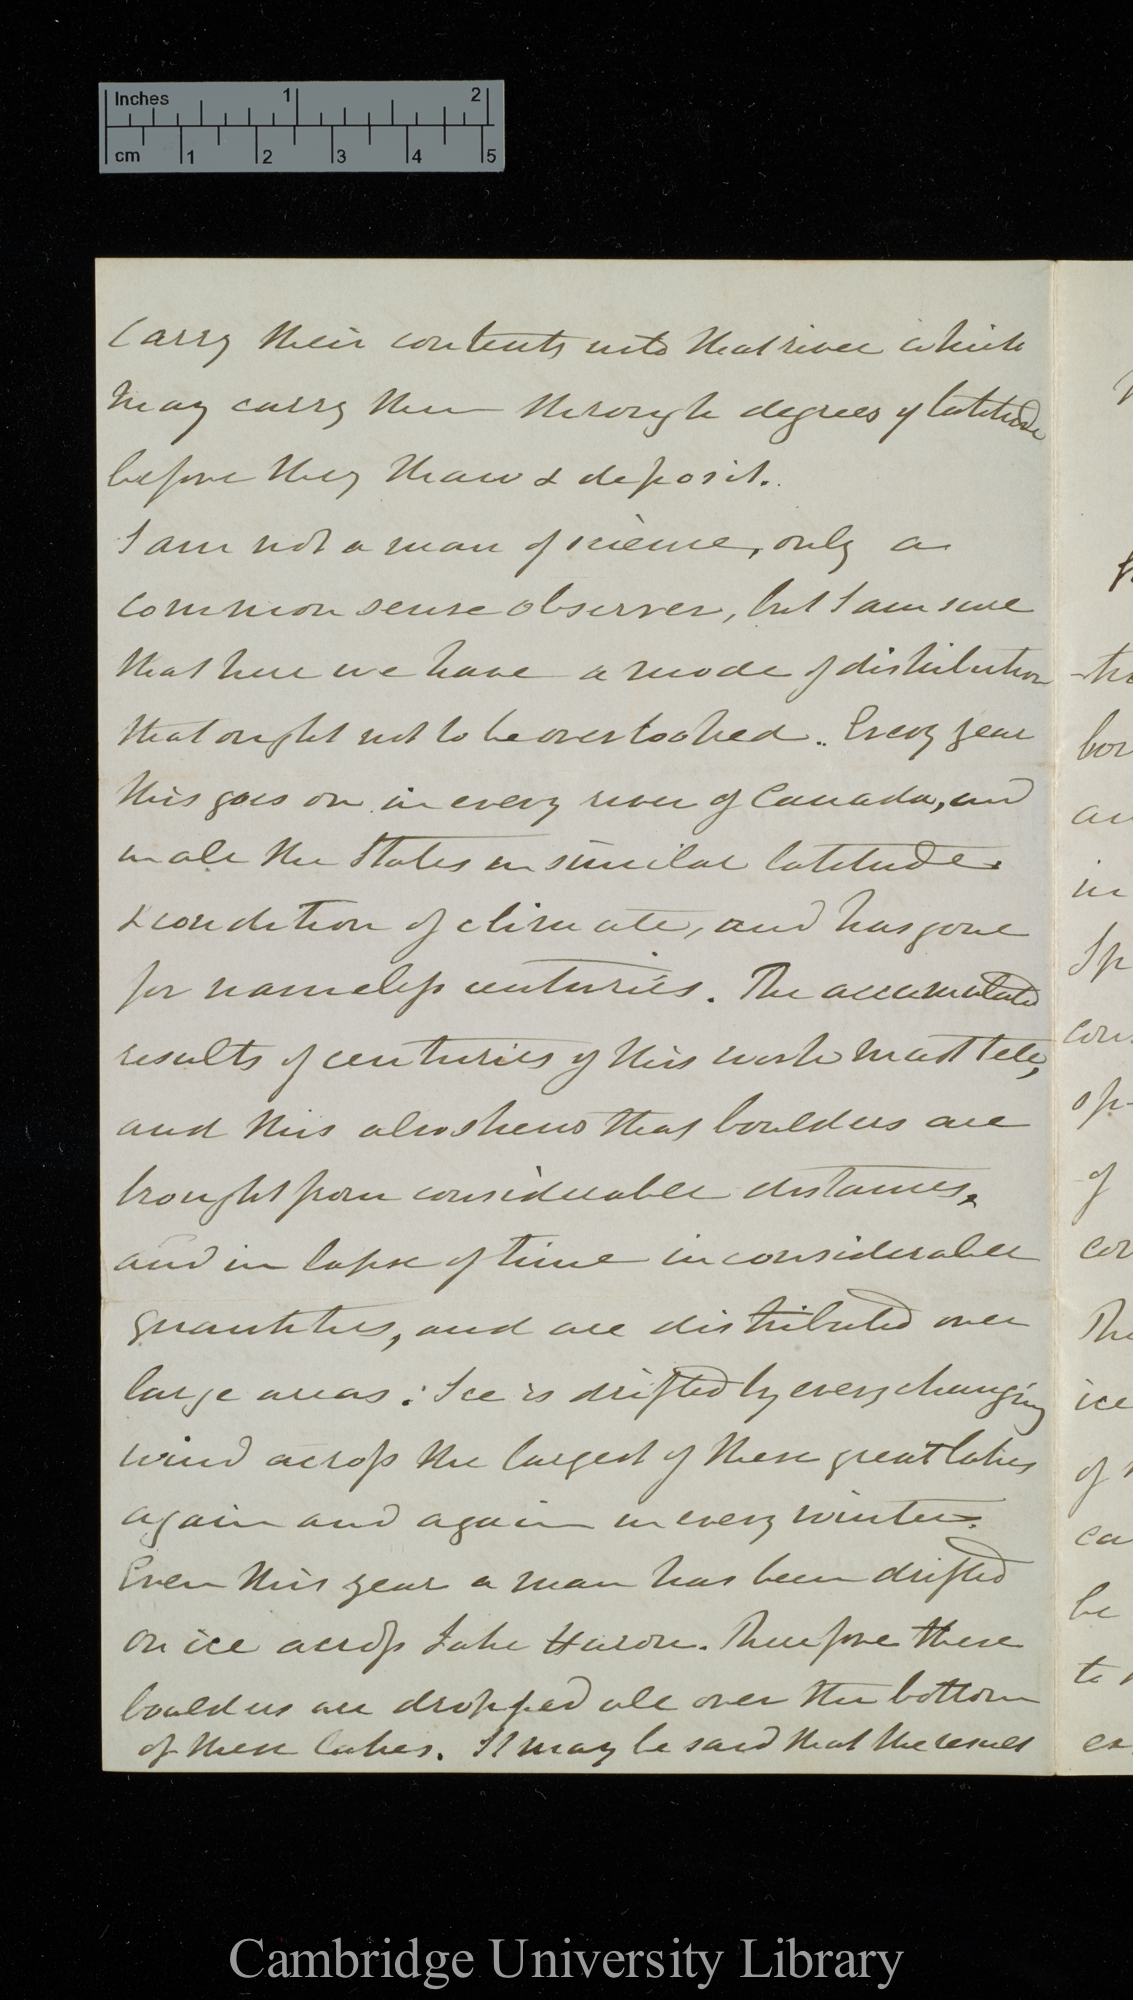 Inches 1 2
cm 1 2 3 4 5
Carry their contents into that river which
may carry them through degrees of latitude
before they thaw & deposit.
I am not a man of science, only a
common sense observer, but I am sure
that here we have a mode of distribution
that ought not to be overlooked. Every year
this goes on in every river of Canada, and
in all the States in similar latitudes
& condition of climate, and has gone
for nameless centuries. The accumulated
results of centuries of this work must tell,
and this also shews that boulders are
brought from considerable distances,
and in lapse of time in considerable
quantities, and are distributed over
large areas: Ice is drifted by every changing
wind across the largest of these great lakes
again and again in every winter.
Even this year a man has been drifted
on ice across Lake Huron. Therefore these
boulders are dropped all over the bottom
of these lakes. It may be said that the result
-tr
bor
an
in
Sp
con
op-
of
con
The
ice
of
ca
be
to
ex
Cambridge University Library